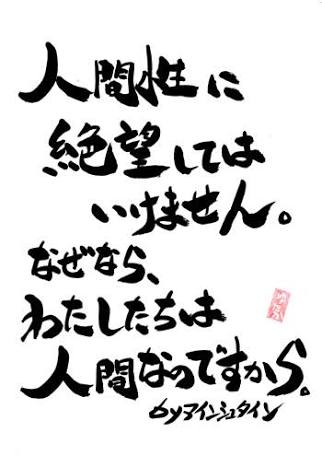 人間性に
絶望しては
いけません。
なぜなら、
わたしたちは
人間なのですから。
byアインシュタイン